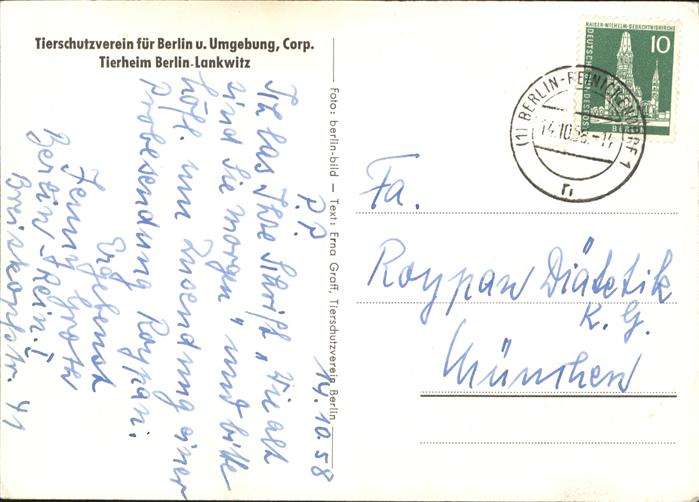 Tierschutzverein für Berlin u. Umgebung, Corp.
Tierheim Berlin-Lankwitz
Foto: berlin-bild — Text: Erna Graff, Tierschutzverein Berlin
14.10.58
P.P.
Ich las Ihre Schrift „Wie alt
sind Sie morgen" und bitte
höfl. um Zusendung einer
Probesendung Roypan.
Ergebenst
Jenny Grote
Berlin-Rein. 1
Breitkopfstr. 41
KAISER-WILHELM-GEDÄCHTNISKIRCHE
10
DEUTSCHE BUNDESPOST
BERLIN
(1) BERLIN-REINICKENDORF 1
14.10.58.-17
n
Fa.
Roypan Diätetik
K.G.
München